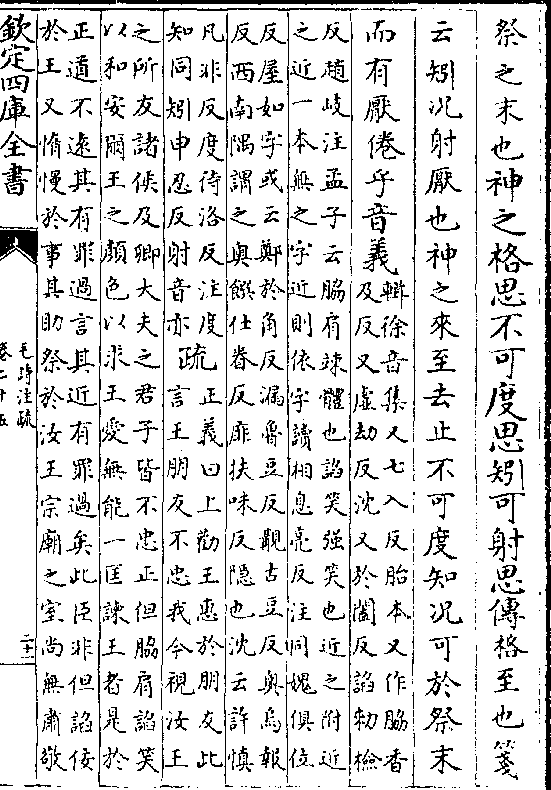 祭之末也神之格思不可度思矧可射思傳格至也箋
云矧况射厭也神之來至去止不可度知况可於祭末
而有厭倦乎音義輯徐音集又七入反胎本又作脇香
及反又虛劫反沈又於闔反諂勑檢
反趙岐注孟子云脇肩竦體也諂笑强笑也近之附近
之近一本無之字近則依字讀相息亮反注同媿俱位
反屋如字或云鄭於角反漏魯豆反覯古豆反奥烏報
反西南隅謂之奥饌仕眷反厞扶味反隱也沈云許慎
凡非反度待洛反注度
知同矧申忍反射音亦疏正義曰上勸王惠於朋友此
言王朋友不忠我今視汝王
之所友諸侯及卿大夫之君子皆不忠正但脇肩諂笑
以和安爾王之顔色以求王愛無能一匡諫王者是於
正道不遠其有罪過言其近有罪過矣此臣非但諂佞
於王又惰慢於事其助祭於汝王宗廟之室尚無肅敬
欽定四庫全書
毛詩注疏
卷二十五
二十一